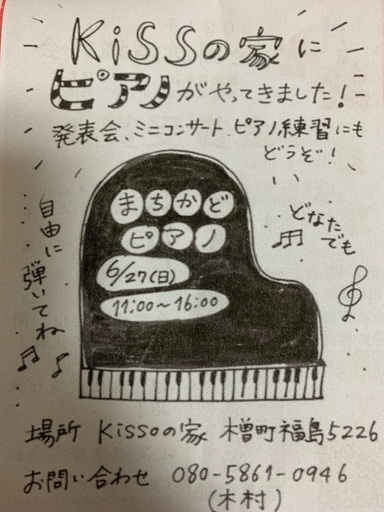 KiSSの家に
ピアノがやってきました!
発表会、ミニコンサート、ピアノ練習にも
どうぞ!
まちかど
ピアノ
6/27(日)
11:00~16:00
自由に
弾いてね
どなたでも
場所 Kissoの家 木曽町福島5226
お問い合わせ 080-5861-0946
(木村)